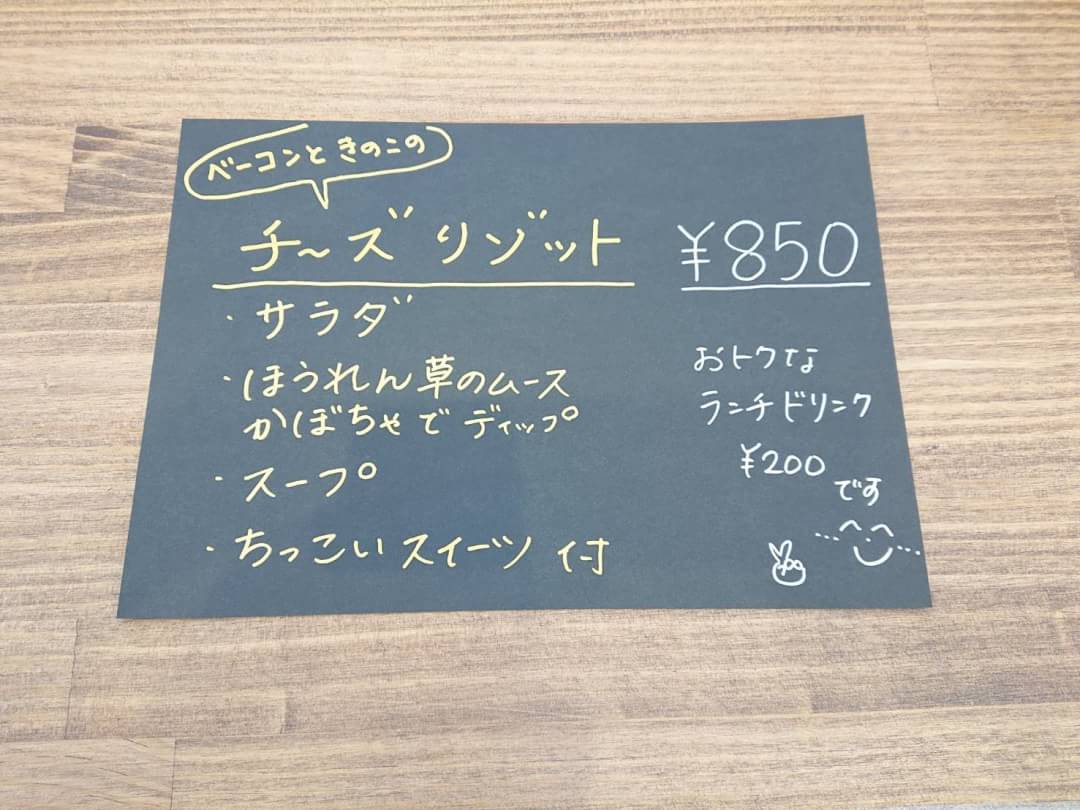 ベーコンと きのこの
チ〜ズ リゾット ¥850
・サラダ
・ほうれん草のムース
かぼちゃで ディップ
・スープ
・ちっこい スイーツ 付
おトクな
ランチドリンク
¥200
です